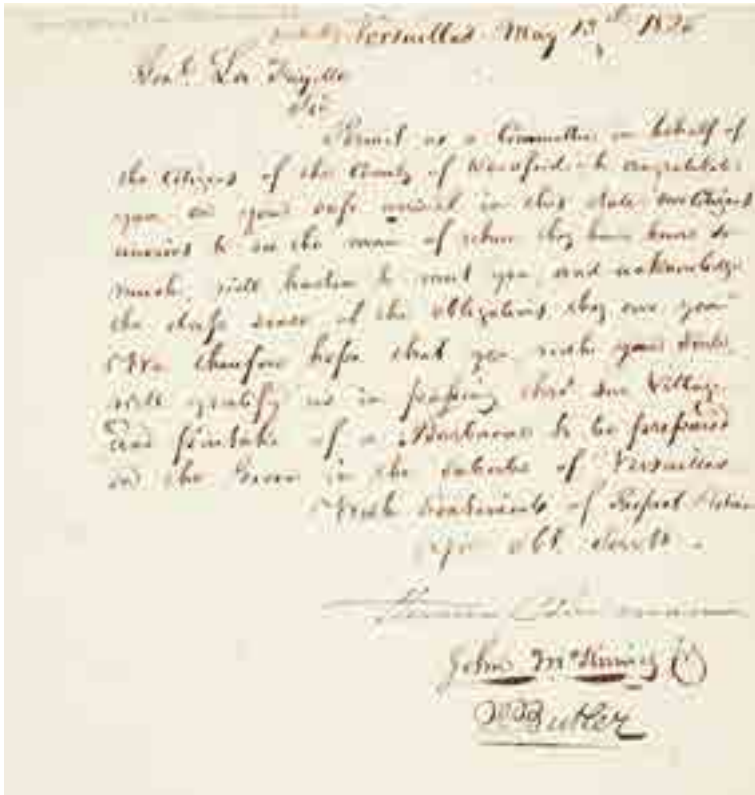 Versailles May 13th 182
Genl. La Fayette
Sir
Permit us a Committee in behalf of
the Citizens of the County of Woodford to congratulate
you on your safe arrival in this State our Citizens
anxious to see the man of whom they have heard so
much, will hasten to meet you, and acknowledge
the deep sense of the obligations they owe you
We therefore hope that you with your suite
will gratify us in passing thro' our Village
and partake of a Barbacue to be prepared
in the Grove in the suburbs of Versailles
With sentiments of Respect
your obt. servts.
John McKinney
Butler